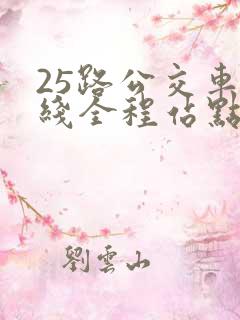 25路公交車
綫全程佔點
劉雲山